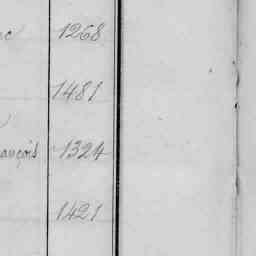 1268
1481
ançois 1324
1421